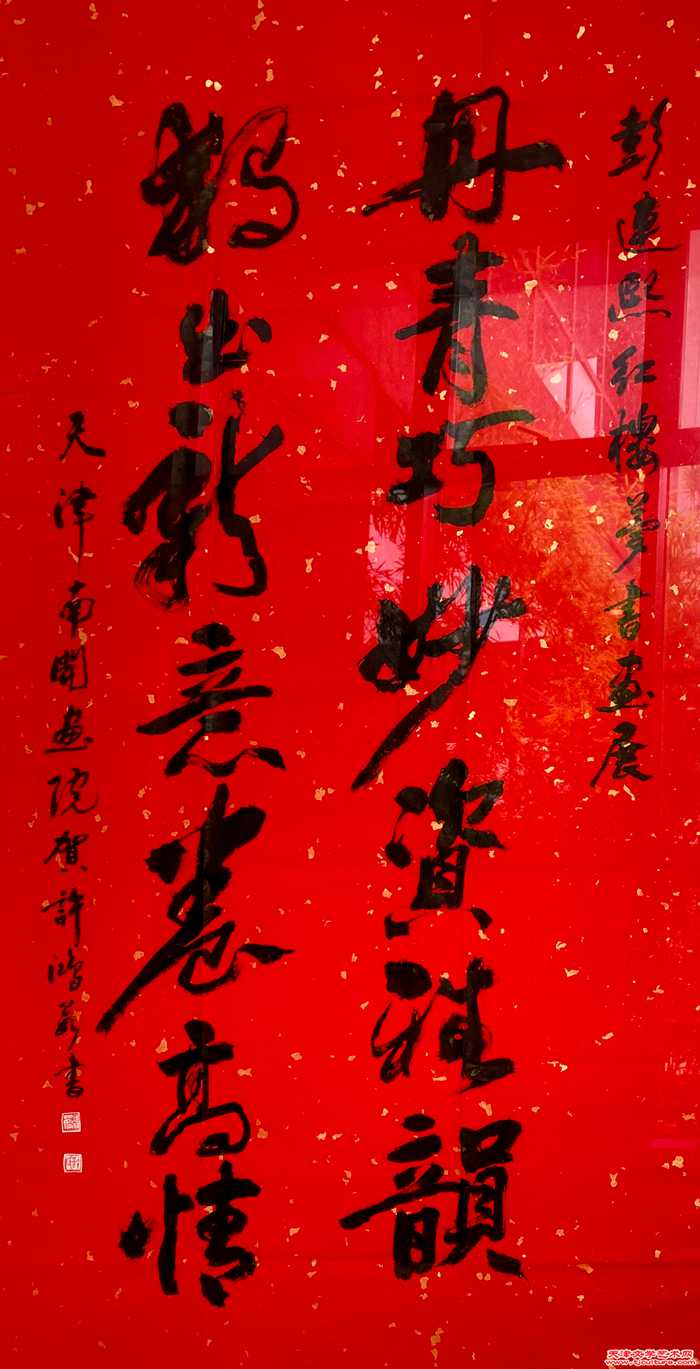 彭連熙红樓夢書畫展
丹青巧妙資雅韻
出新意養高情
天津南開畫院賀許鴻書
天津文学艺术网
www.tjculture.com